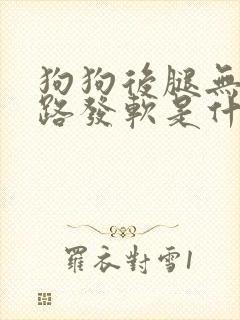 狗狗後腿無
路發軟是什
羅衣對雪1